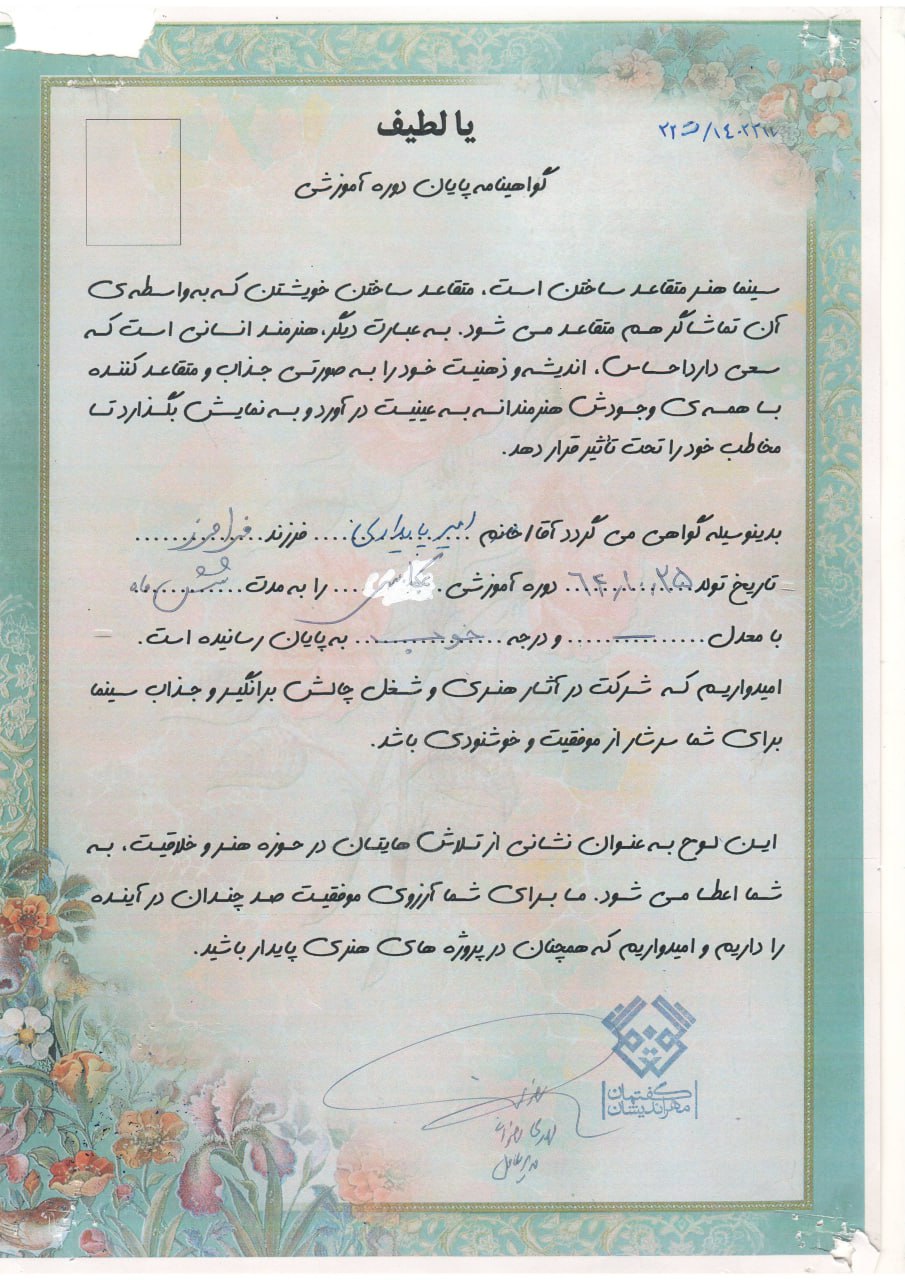 یا لطیف
۱۴۰۲۲۱۲/ث۲۲
گواهینامه پایان دوره آموزشی
سینما هنر متقاعد ساختن است، متقاعد ساختن خویشتن که به واسطه ی
آن تماشاگر هم متقاعد می شود. به عبارت دیگر، هنرمند انسانی است که
سعی دارد احساس، اندیشه و ذهنیت خود را به صورتی جذاب و متقاعد کننده
با همه ی وجودش هنرمندانه به عینیت در آورد و به نمایش بگذارد تا
مخاطب خود را تحت تأثیر قرار دهد.
بدینوسیله گواهی می گردد آقا/خانم امیر پایداری .... فرزند فرامرز
تاریخ تولد ۶۴,۱۰,۲۵ دوره آموزشی ..... را به مدت شش ماه
با معدل ......—...... و درجه خوب به پایان رسانیده است.
امیدواریم که شرکت در آثار هنری و شغل چالش برانگیز و جذاب سینما
برای شما سرشار از موفقیت و خوشنودی باشد.
این لوح به عنوان نشانی از تلاش هایتان در حوزه هنر و خلاقیت، به
شما اعطا می شود. ما برای شما آرزوی موفقیت صد چندان در آینده
را داریم و امیدواریم که همچنان در پروژه های هنری پایدار باشید.
گفتمان
مهراندیشان
مدیر عامل